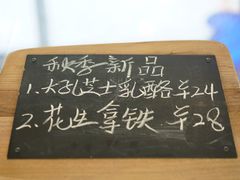 秋季新品
1.大孔芝士乳酪¥24
2.花生拿铁 ¥28